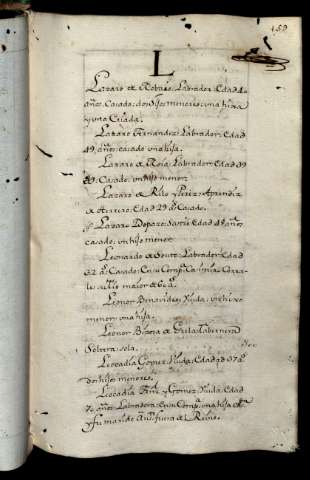 159
L
Lazaro de Robres, Labrador: Edad 40
años, Casado, dos hijos menores, una hija
y una Criada.
Lazaro Fernandez, Labrador: Edad
49, años, casado una hija.
Lazaro de Roja, Labrador: Edad 39
Casado, un hijo menor.
Lazaro de Rivo y Perez, Aprendiz
de Arriero: Edad 29 as Casado.
Lazaro Sastre Edad 48 años,
casado, un hijo menor
Leonardo de Souto, Labrador: Edad
32 as Casado: En su Compª
maior de 60 as
Leonor Benavides, Viuda, un hijo
menor, una hija.
Leonor Tabernera
Soltera sola.
Leocadia Gomez, Viuda, Edad de 37 as
dos hijos menores.
Leocadia Frnz y Gomez, Viuda, Edad
Labradora: en su Compª una hija
y su marido de Rivo.